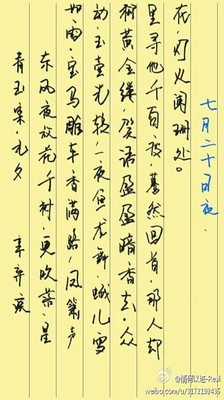 青玉案·元夕 辛弃疾
东风夜放花千树,更吹落,星
如雨。宝马雕车香满路,凤箫声
动,玉壶光转,一夜鱼龙舞。蛾儿雪
柳黄金缕,笑语盈盈暗香去。众
里寻他千百度,蓦然回首,那人却
在,灯火阑珊处。
七月二十日夜.
weibo.com/u/3172198435